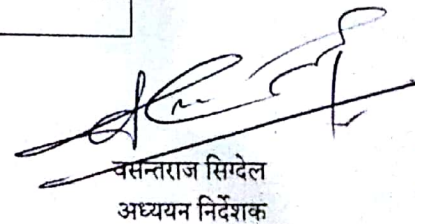 वसन्तराज सिग्देल
अध्ययन निर्देशक